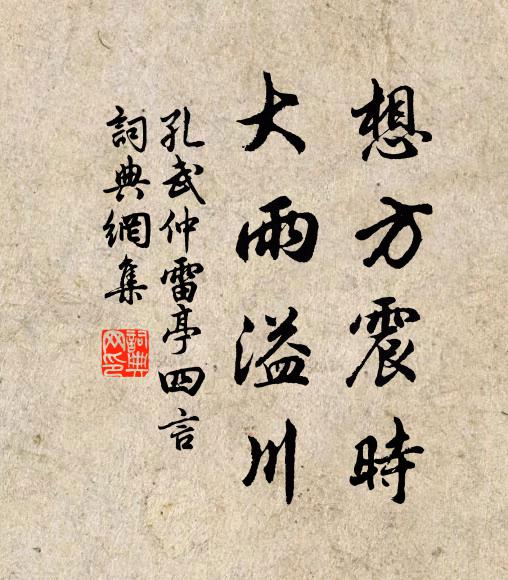 想方震時
大雨溢川
孔武仲雷亭四言
詞典網集
詞典網印